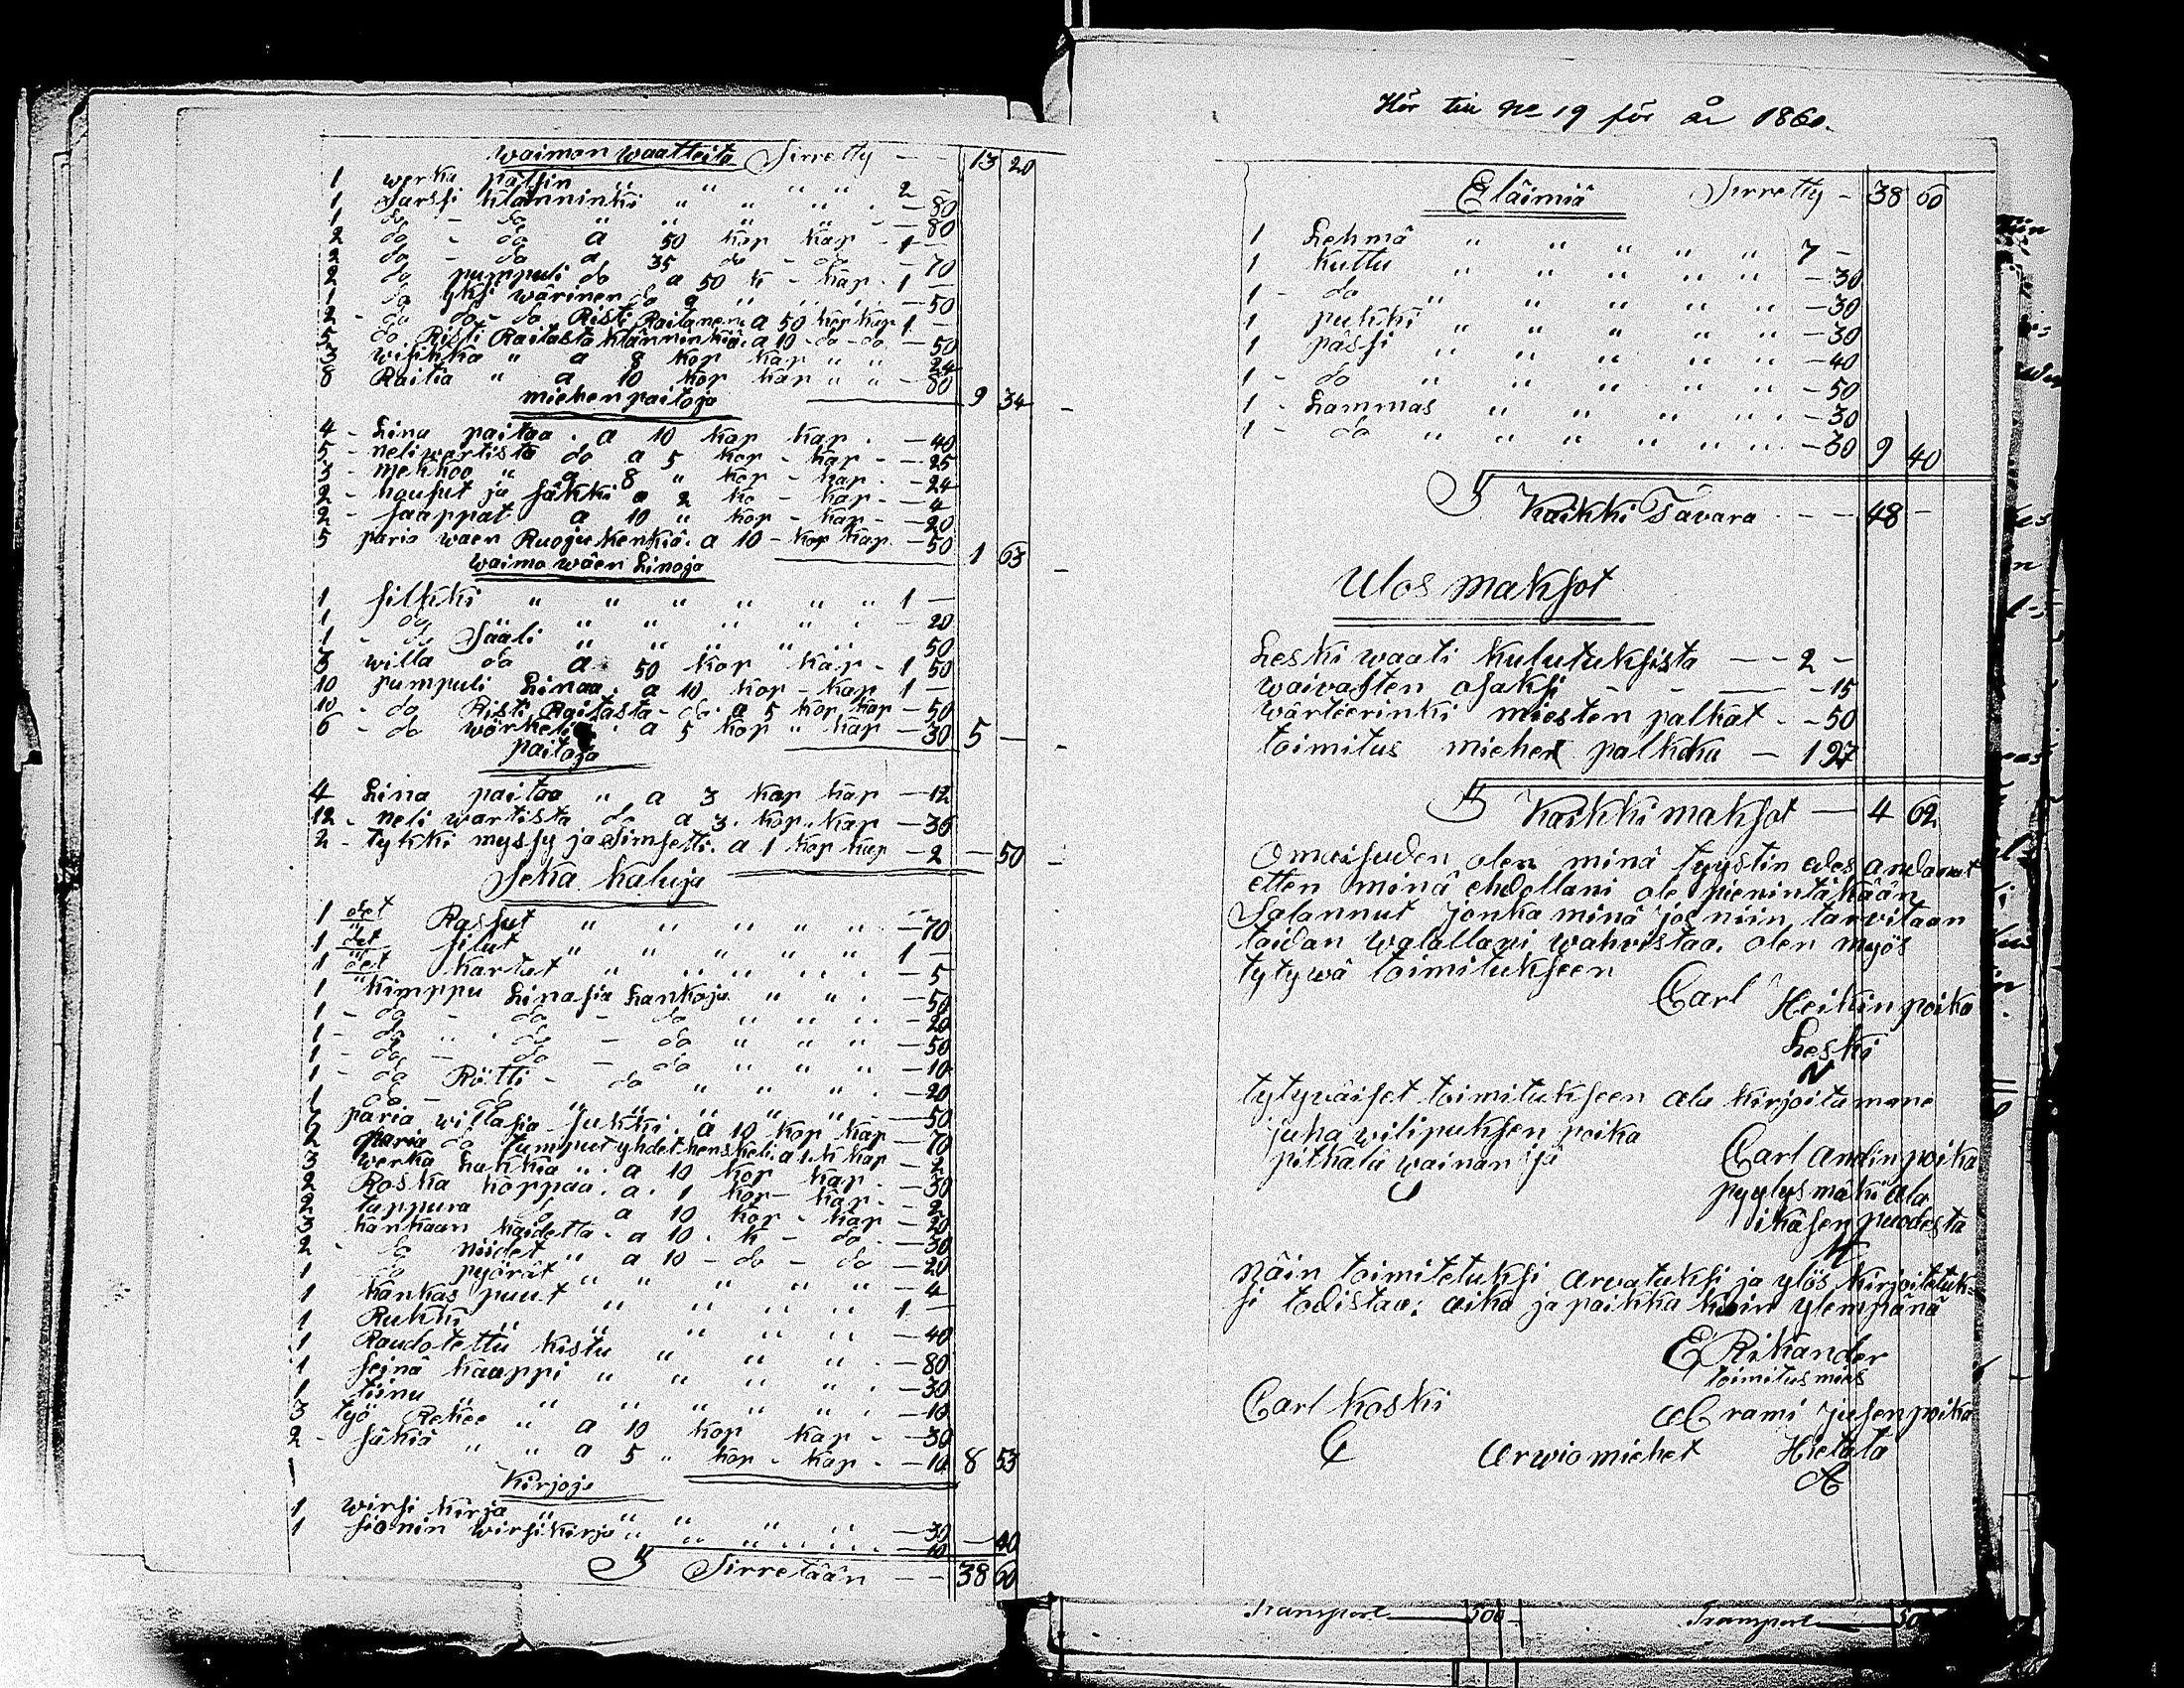 waimon waatteita Sirretty — 13 20
1 werka pätsin " " " " 2 —
1 Sarssi Klänninki " " " . — 80
1 do - do " " " " - — 80
2 do - do a 50 kop kap - 1 —
2 do - do a 35 do - do — 70
2 do pumpuli do a 50 k - kap . 1 —
1 do yksi wärinen do a " " " " — 50
2 - do do - do Risti Raitanen a 50 kop kap 1 —
5 do Risti Raitasta klänninkiä a 10 - do - do — 50
3 wisikka " a 8 kop kap " " 24
8 Raitia " a 10 kop kap " " — 80 9 34
miehen paitoja
4 - Lina paitaa . a 10 kop kap . — 40
5 - neliwartista do a 5 kop - kap - — 25
3 - mekkoo " a 8 " kop - kap . — 24
2 - housut ja säkki a 2 ko - kap - — 4
2 - saappat a 10 " kop - kap - — 20
5 paria waen Ruojus kenkiä . a 10 - kop kap . — 50 1 63
waimo wäen Linoja
1 silkki " " " " " " 1 —
1 do " " " " " . — 20
1 - do Sääli " " " " " 50
3 willa do a 50 kop kap - 1 50
10 pumpuli Linaa . a 10 kop - kap 1 —
10 - do Risti Raitasta - do . a 5 kop kap — 50
6 - do . a 5 kop " kap — 30 5 —
paitoja
4 Lina paitaa " a 3 kop kap — 12
12 - neli wartista do a 3 . kop . kap — 36
2 - tykki myssy ja Simsetti . a 1 kop kap — 2 — 50
Seka kaluja
1 det Rassut " " " " " — 70
1 det silut " " " " " 1 —
1 det kartut " " " " " . — 5
1 " kimppu Linasia Lankoja " " . — 50
1 - do - do - do " " " . — 20
1 - do " . do - do " " " — 50
1 - do - do - do " " " — 10
1 - do Rötti - do " " " . — 20
1 do - do " " " " " — 50
7 paria willasia sukki . a 10 kop kap — 70
2 paria do tumput yhdet henskeli a 1 k kap — 2
3 werka Lakkia " . a 10 kop kap . — 30
2 Roska koppaa . a . 1 kop - kap . — 2
2 tappura do a 10 kop - kap — 20
3 kankaan kaidetta . a 10 . k - do . — 30
2 - do niidet " a 10 - do - do — 20
1 do pyörät " " " " " — 4
1 kankas puut " " " " " 1 —
1 Rukki " " " " " — 40
1 Raudotettu kistu " " " . — 80
1 seinä kaappi " " " " . — 30
1 tiinu " " " " " . — 10
3 työ Rekee " a 10 kop kap - — 30
2 - säkiä " " a 5 " kop - kap . — 10 8 53
Kirjoja
1 wirsi kirja " " " " " — 30
1 sionin wirsikirja " " " " " . — 10 — 40
S Sirretään — 38 60
Hör till No 19 för år 1860.
Eläimiä Sirretty - 38 60
1 Lehmä " " " " " 7 -
1 kuttu " " " " " — 30
1 - do " " " " " — 30
1 pukki " " " " " — 30
1 pässi " " " " " — 40
1 - do " " " " " — 50
1 - Lammas " " " " . — 30
1 - do " " " " " " — 30 9 40
S Kaikki Tavara - — — 48 -
Ulos maksot
Leski waati kulutuksista — - 2 -
waivasten osaksi - - — - 15
wärteerinki miesten palkat - - 50
toimitus miehen palkka — 1 97
S Kaikki maksot — 4 62
Omaisuden olen minä tyystin edes andanut
etten minä ehdollani ole pienintäkään
Salannut jonka minä jos niin tarvitaan
taidan walallani wahvistaa. olen myös
tytywä toimitukseen
Carl Heikinpoika
Leski
tytywäiset toimitukseen ala kirjoitamme
juha wilipuksen poika
pitkälä wainan ijä
Carl andinpoika
pyylys mäki ala
ikäsen puodesta
Näin toimitetuksi arvatuksi ja ylös kirjoitetuk-
si todistaa: aika ja paikka kuin ylempänä
E Rikander
toimitus mies
Carl koski
Abrami jusenpoika
Arwio miehet Hietala
Transport — 500 Transport — 50